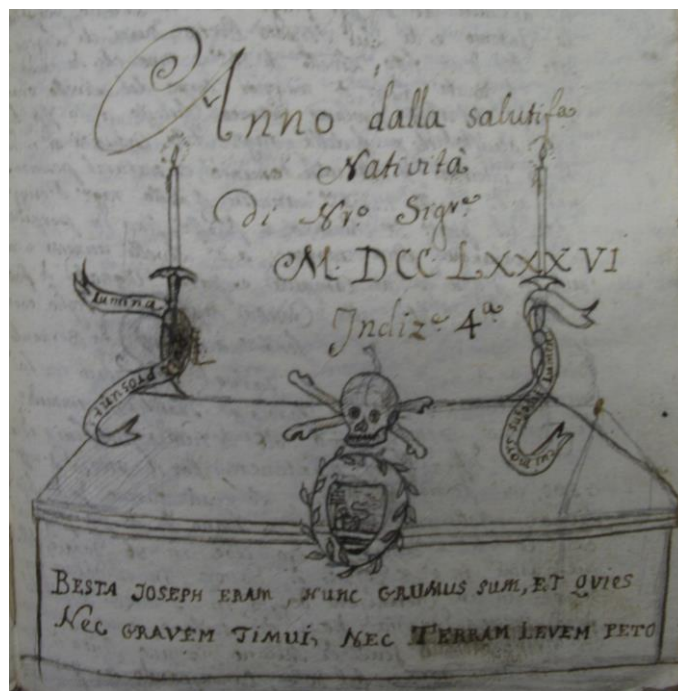 Anno dalla salutifa
Natività
di Nro Sigre
M. DCC LXXXVI
Indize 4a
Lumina
prosunt
Lumen
BESTA JOSEPH ERAM, NUNC GRUMUS SUM, ET QVIES
NEC GRAVEM TIMUI, NEC TERRAM LEVEM PETO